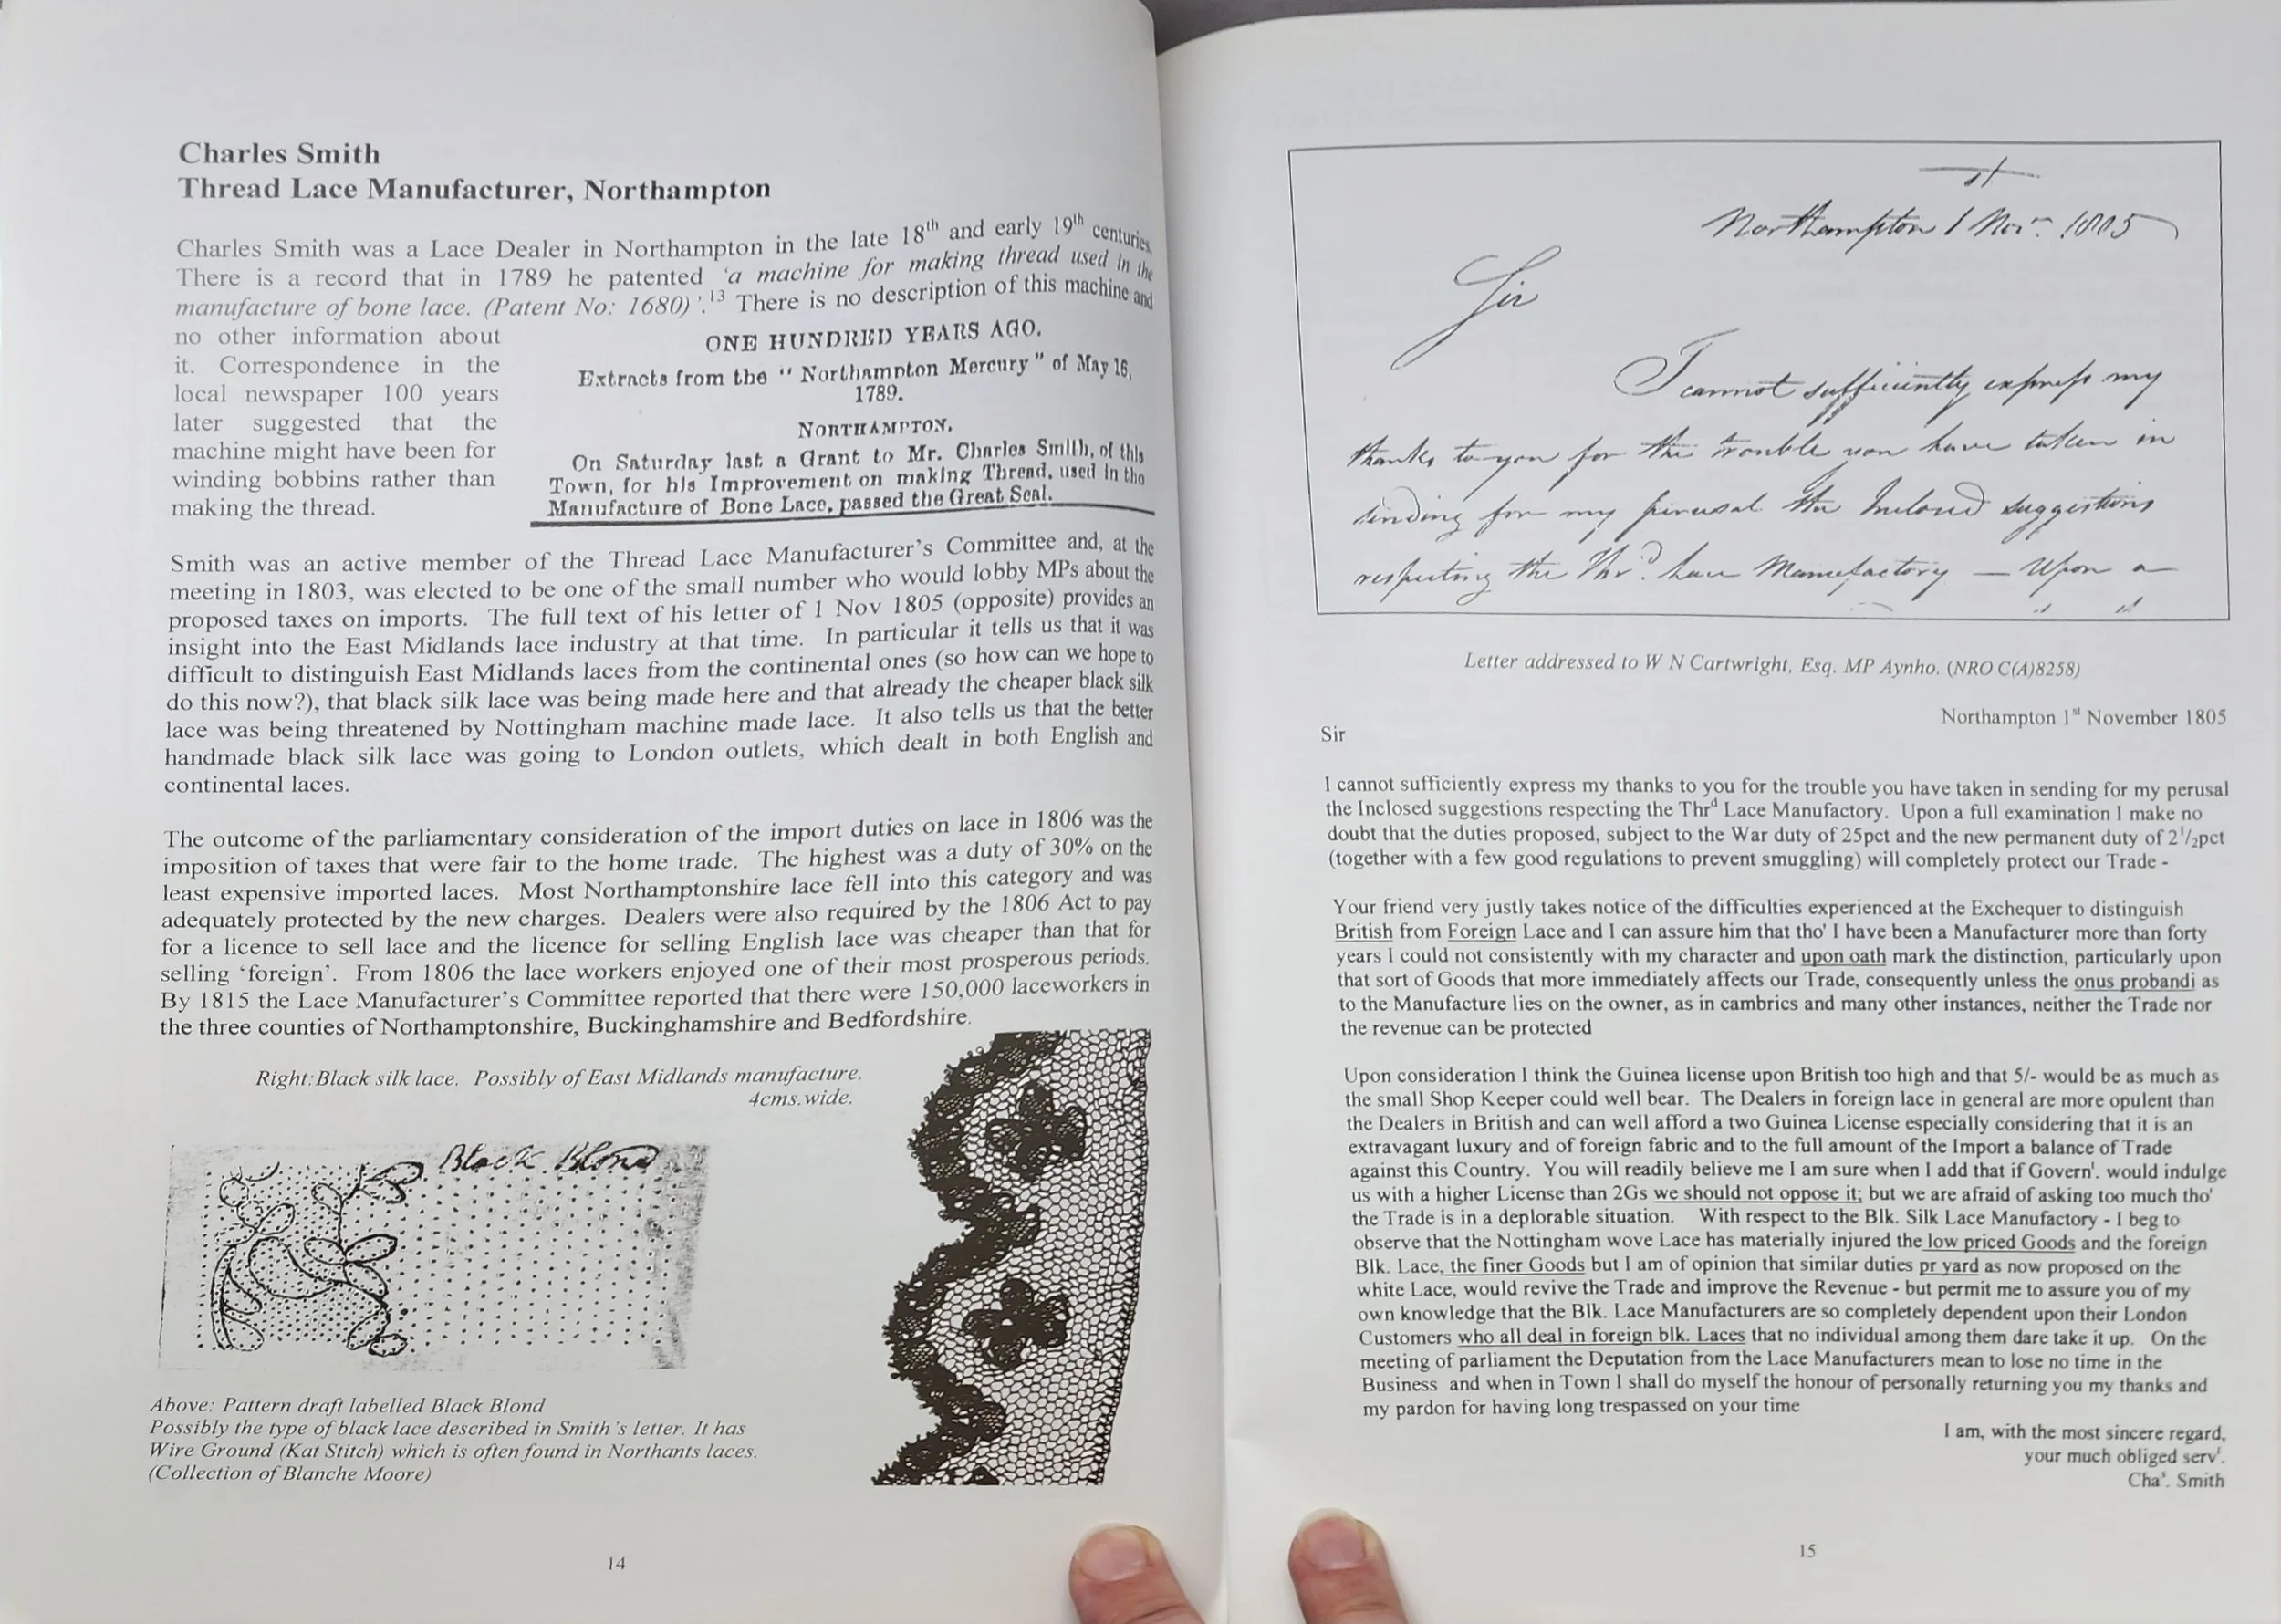 Charles Smith
Thread Lace Manufacturer, Northampton
Charles Smith was a Lace Dealer in Northampton in the late 18th and early 19th centuries.
There is a record that in 1789 he patented ‘a machine for making thread used in the
manufacture of bone lace. (Patent No: 1680)’.13 There is no description of this machine and
no other information about
it. Correspondence in the
local newspaper 100 years
later suggested that the
machine might have been for
winding bobbins rather than
making the thread.
ONE HUNDRED YEARS AGO.
Extracts from the “Northampton Mercury” of May 16,
1789.
NORTHAMPTON.
On Saturday last a Grant to Mr. Charles Smith, of this
Town, for his Improvement on making Thread, used in the
Manufacture of Bone Lace, passed the Great Seal.
Smith was an active member of the Thread Lace Manufacturer’s Committee and, at the
meeting in 1803, was elected to be one of the small number who would lobby MPs about the
proposed taxes on imports. The full text of his letter of 1 Nov 1805 (opposite) provides an
insight into the East Midlands lace industry at that time. In particular it tells us that it was
difficult to distinguish East Midlands laces from the continental ones (so how can we hope to
do this now?), that black silk lace was being made here and that already the cheaper black silk
lace was being threatened by Nottingham machine made lace. It also tells us that the better
handmade black silk lace was going to London outlets, which dealt in both English and
continental laces.
The outcome of the parliamentary consideration of the import duties on lace in 1806 was the
imposition of taxes that were fair to the home trade. The highest was a duty of 30% on the
least expensive imported laces. Most Northamptonshire lace fell into this category and was
adequately protected by the new charges. Dealers were also required by the 1806 Act to pay
for a licence to sell lace and the licence for selling English lace was cheaper than that for
selling ‘foreign’. From 1806 the lace workers enjoyed one of their most prosperous periods.
By 1815 the Lace Manufacturer’s Committee reported that there were 150,000 laceworkers in
the three counties of Northamptonshire, Buckinghamshire and Bedfordshire.
Right: Black silk lace. Possibly of East Midlands manufacture.
4cms. wide.
Black Blond
Above: Pattern draft labelled Black Blond
Possibly the type of black lace described in Smith’s letter. It has
Wire Ground (Kat Stitch) which is often found in Northants laces.
(Collection of Blanche Moore)
14
Northampton 1 Nov.r 1805
Sir
I cannot sufficiently express my
thanks to you for the trouble you have taken in
sending for my perusal the Inclosed suggestions
respecting the Thr.d Lace Manufactory — Upon a
Letter addressed to W N Cartwright, Esq. MP Aynho. (NRO C(A)8258)
Northampton 1st November 1805
Sir
I cannot sufficiently express my thanks to you for the trouble you have taken in sending for my perusal
the Inclosed suggestions respecting the Thrd Lace Manufactory. Upon a full examination I make no
doubt that the duties proposed, subject to the War duty of 25pct and the new permanent duty of 2½pct
(together with a few good regulations to prevent smuggling) will completely protect our Trade -
Your friend very justly takes notice of the difficulties experienced at the Exchequer to distinguish
British from Foreign Lace and I can assure him that tho' I have been a Manufacturer more than forty
years I could not consistently with my character and upon oath mark the distinction, particularly upon
that sort of Goods that more immediately affects our Trade, consequently unless the onus probandi as
to the Manufacture lies on the owner, as in cambrics and many other instances, neither the Trade nor
the revenue can be protected
Upon consideration I think the Guinea license upon British too high and that 5/- would be as much as
the small Shop Keeper could well bear. The Dealers in foreign lace in general are more opulent than
the Dealers in British and can well afford a two Guinea License especially considering that it is an
extravagant luxury and of foreign fabric and to the full amount of the Import a balance of Trade
against this Country. You will readily believe me I am sure when I add that if Governt. would indulge
us with a higher License than 2Gs we should not oppose it; but we are afraid of asking too much tho'
the Trade is in a deplorable situation. With respect to the Blk. Silk Lace Manufactory - I beg to
observe that the Nottingham wove Lace has materially injured the low priced Goods and the foreign
Blk. Lace, the finer Goods but I am of opinion that similar duties pr yard as now proposed on the
white Lace, would revive the Trade and improve the Revenue - but permit me to assure you of my
own knowledge that the Blk. Lace Manufacturers are so completely dependent upon their London
Customers who all deal in foreign blk. Laces that no individual among them dare take it up. On the
meeting of parliament the Deputation from the Lace Manufacturers mean to lose no time in the
Business and when in Town I shall do myself the honour of personally returning you my thanks and
my pardon for having long trespassed on your time
I am, with the most sincere regard,
your much obliged servt.
Chas. Smith
15